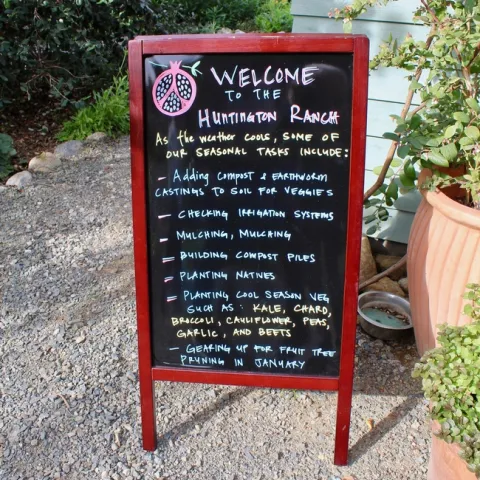 WELCOME
TO THE
HUNTINGTON RANCH
As the weather cools, SOME OF
OUR SEASONAL TASKS INCLUDE:
- Adding compost & EARTHWORM
CASTINGS TO SOIL FOR VEGGIES
- CHECKING IRRIGATION SYSTEMS
- MULCHING, MULCHING
- BUILDING COMPOST PILES
- PLANTING NATIVES
- PLANTING COOL SEASON VEG
SUCH AS: KALE, CHARD,
BROCCOLI, CAULIFLOWER, PEAS,
GARLIC, AND BEETS
- GEARING UP FOR FRUIT TREE
PRUNING IN JANUARY